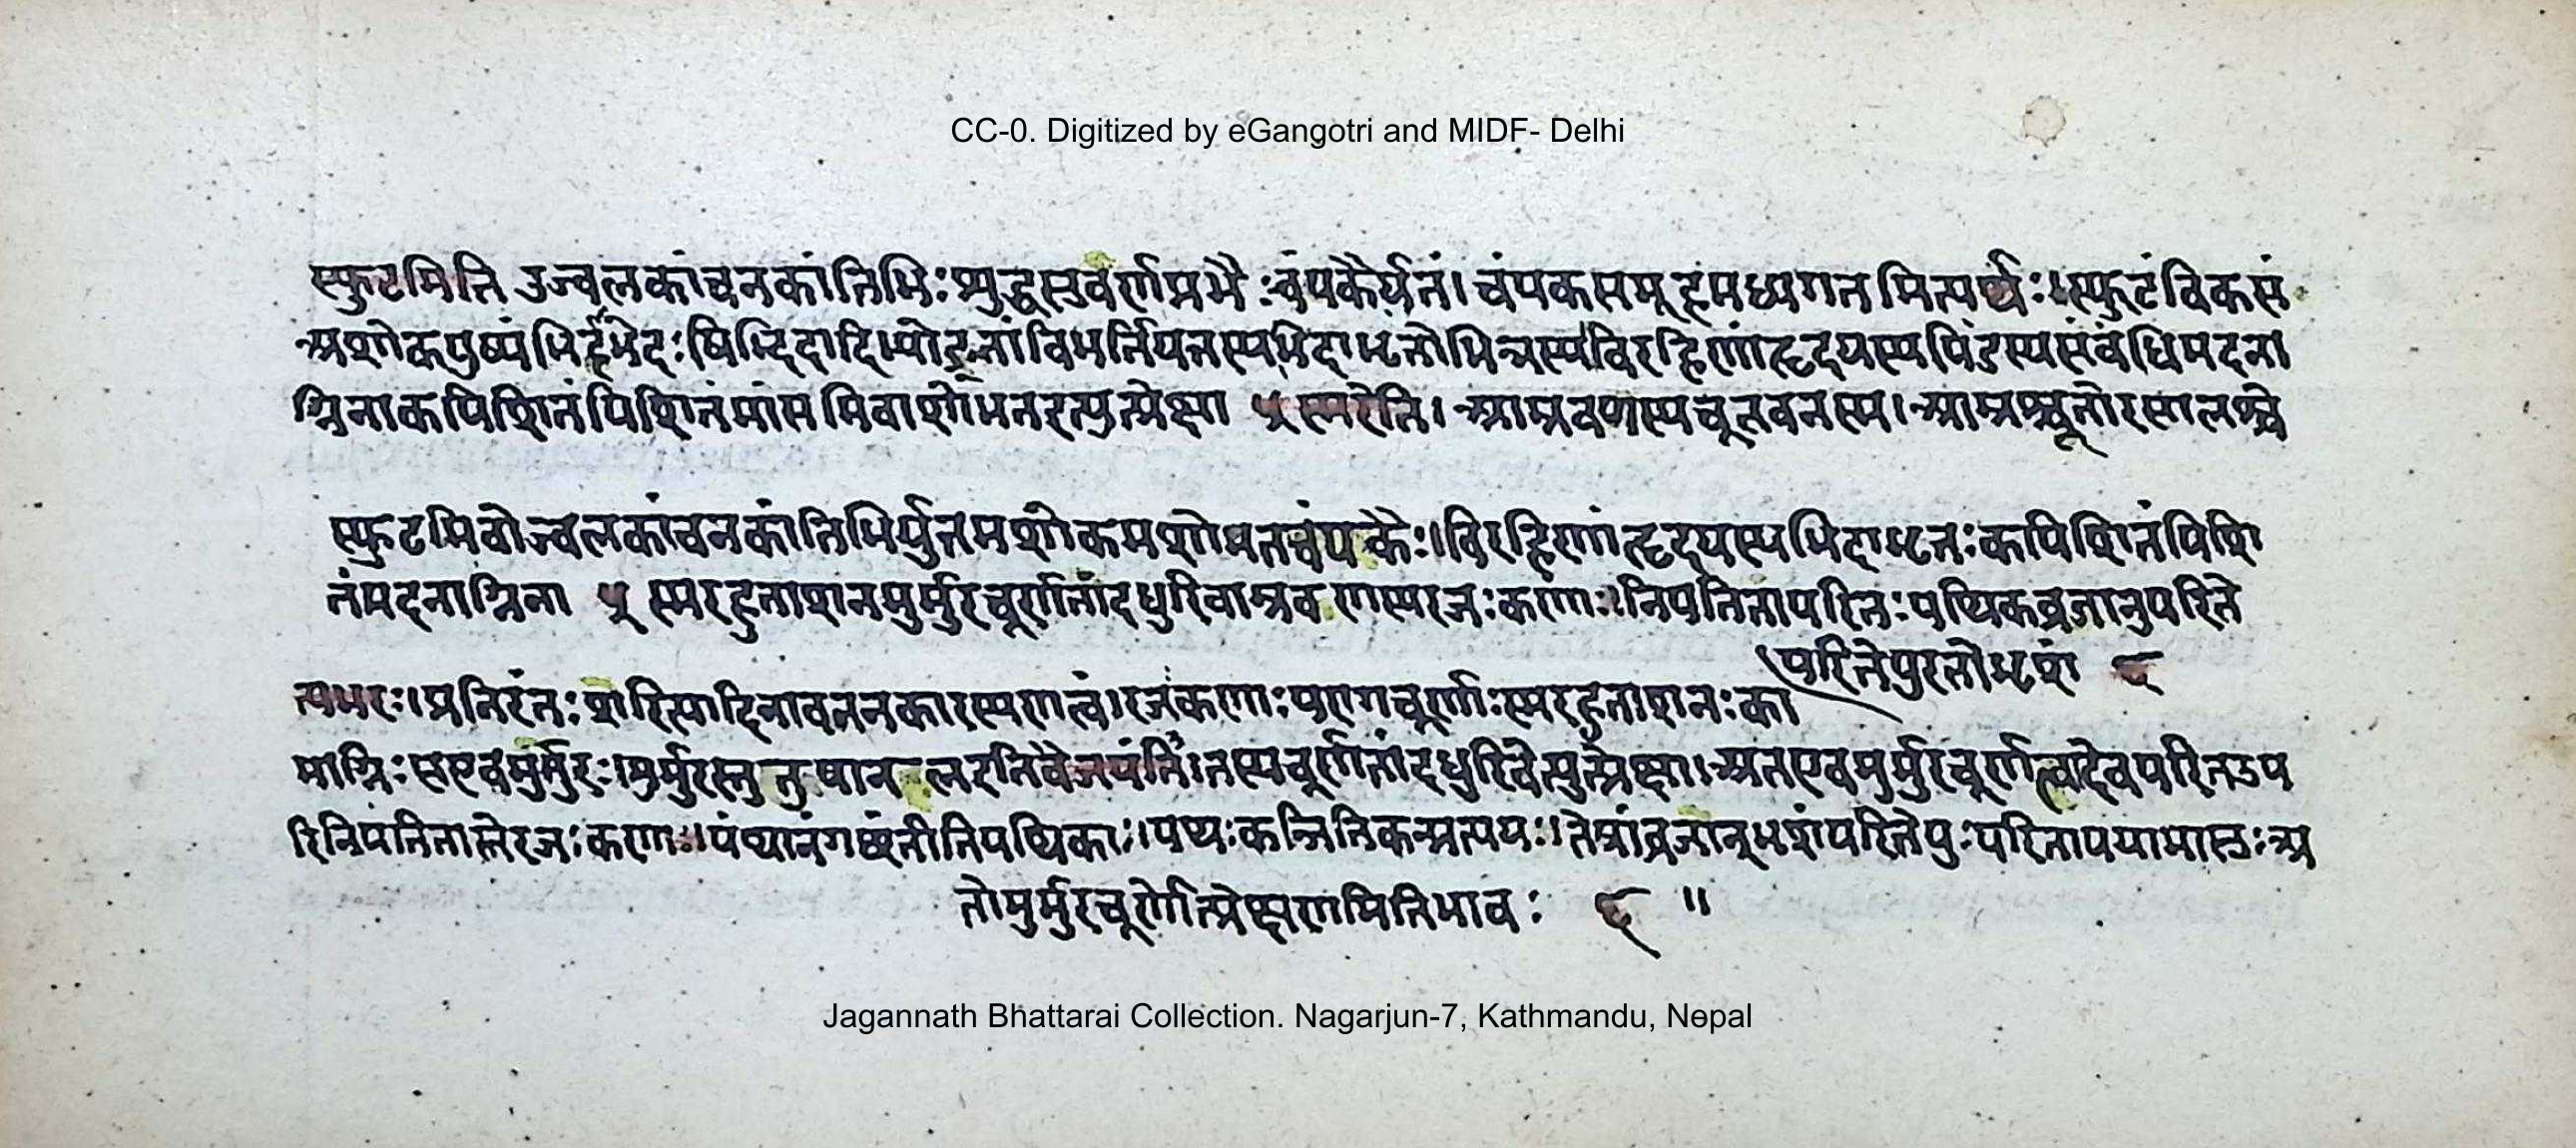 CC-0. Digitized by eGangotri and MIDF- Delhi
स्फुटमिति उज्वलकांचनकांतिभिः शुद्धसुवर्णप्रभैः चंपकैर्युतं। चंपकसमूहमध्यगतमित्यर्थः॥स्फुटंविकसं
अशोकपुष्पं विरहिणांहृदयस्यपिंडस्यसंबंधिमदना
ग्निनाकपिशितंपिशितंमांसमिवाशोभतइत्युत्प्रेक्षा ५ स्मरेति। आम्रवणस्यचूतवनस्य। आम्रश्चूतोरसालश्चे
स्फुटमिवोज्वलकांचनकांतिभिर्युतमशोकमशोभतचंपकैः॥विरहिणांहृदयस्यभिदाभृतःकपिशितंपिशि
तंमदनाग्निना ५ स्मरहुताशनमुर्मुरचूर्णतांदधुरिवाम्रवणस्यरजःकणाः॥निपतितापरितःपथिकव्रजानुपरिते
परितेपुरतोभृशं ६
त्यमरः।प्रनिरंतःशरित्यादिनावननकारस्यणत्वं।रजःकणाःपरागचूर्णाःस्मरहुताशनःका
माग्निःसएवमुर्मुरः।मुर्मुरस्तुतुषानलइतिवैजयंती।तस्यचूर्णतांदधुरिवेत्युत्प्रेक्षा।अतएवमुर्मुरचूर्णत्वादेवपरितउप
रिनिपतितास्तेरजःकणाः॥पंथानंगछंतीतिपथिकाः॥पथःकन्नितिकन्प्रत्ययः॥तेषांव्रजान्भृशंपरितेपुःपरितापयामासुःअ
तोमुर्मुरचूर्णोत्प्रेक्षणमितिभावः ६ ॥
Jagannath Bhattarai Collection. Nagarjun-7, Kathmandu, Nepal